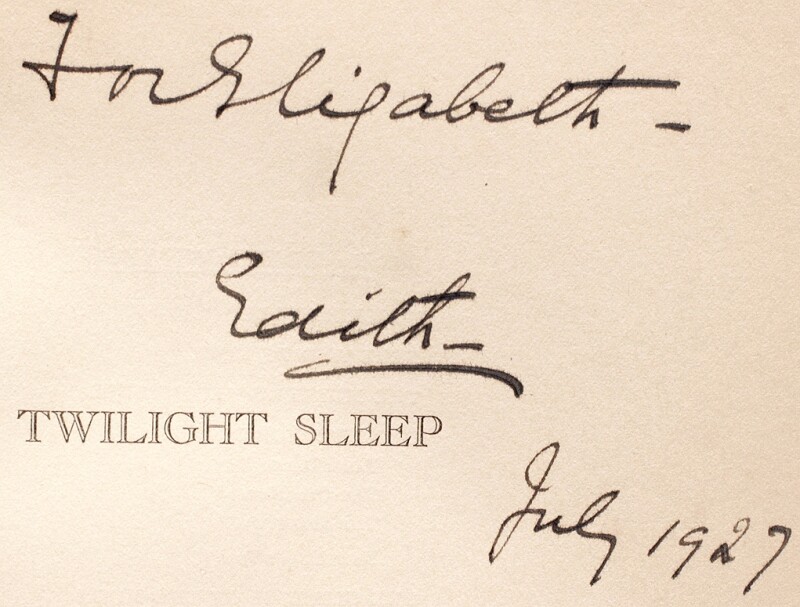 For Elizabeth –
Edith –
TWILIGHT SLEEP
July 1927